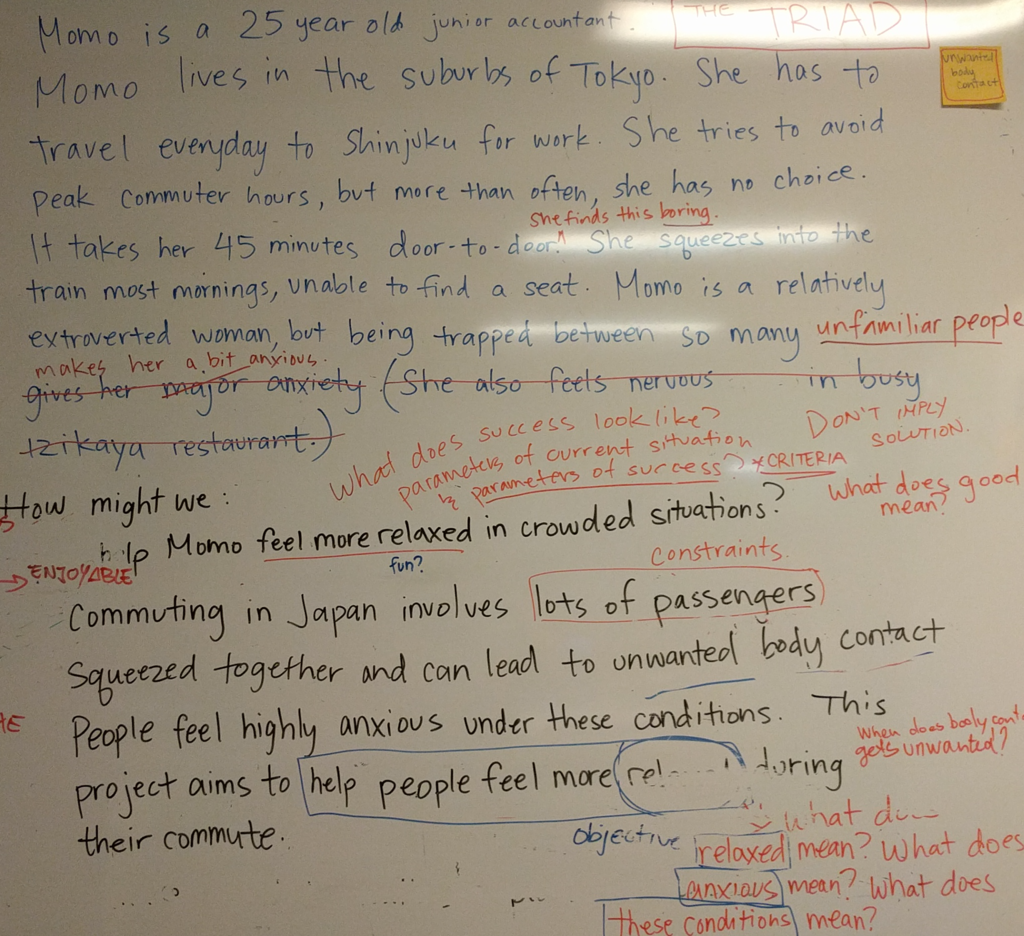 Momo is a 25 year old junior accountant.
THE TRIAD
unwanted
body
contact
Momo lives in the suburbs of Tokyo. She has to
travel everyday to Shinjuku for work. She tries to avoid
peak commuter hours, but more than often, she has no choice.
she finds this boring.
It takes her 45 minutes door-to-door.^ She squeezes into the
train most mornings, unable to find a seat. Momo is a relatively
extroverted woman, but being trapped between so many unfamiliar people
makes her a bit anxious.
gives her major anxiety (She also feels nervous in busy
Izikaya restaurant.)
What does success look like?
parameters of current situation
↳ parameters of success? *CRITERIA
DON'T IMPLY
SOLUTION.
What does good
mean?
How might we:
help Momo feel more relaxed in crowded situations?
→ ENJOYABLE
fun?
constraints.
Commuting in Japan involves lots of passengers
squeezed together and can lead to unwanted body contact
People feel highly anxious under these conditions. This
When does body
gets unwanted?
project aims to help people feel more during
their commute.
objective
what
relaxed mean? What does
anxious mean? What does
these conditions mean?